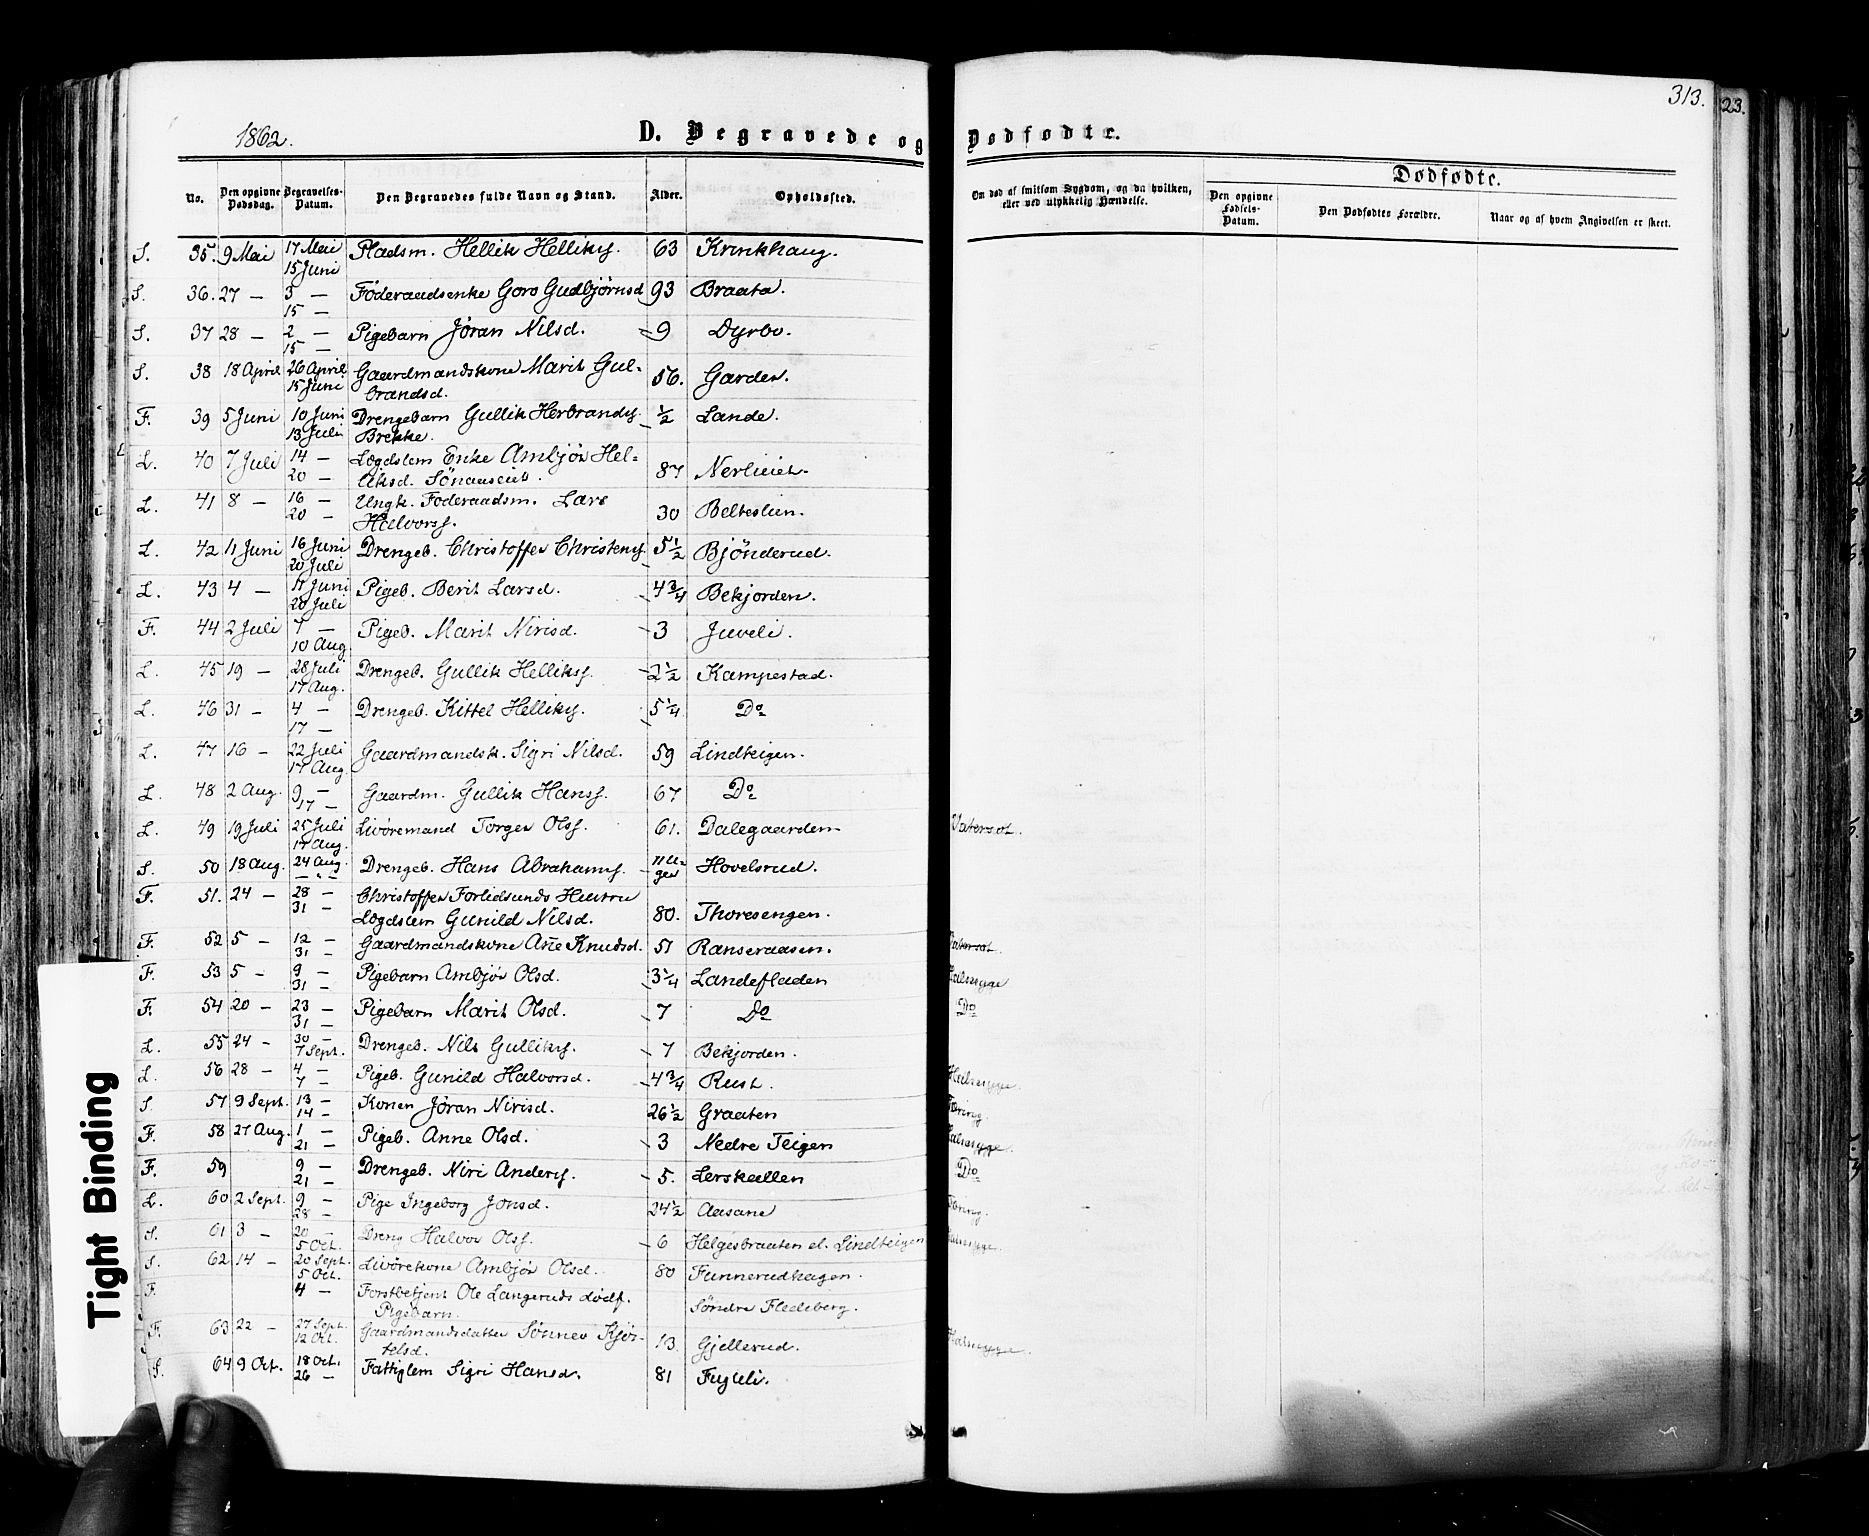 313.
23.
1862.
D. Begravede og Dødfødte.
No. Den opgivne Dødsdag. Begravelses-Datum. Den Begravedes fulde Navn og Stand. Alder. Opholdssted.
Om død af smitsom Sygdom, og da hvilken, eller ved ulykkelig Hændelse.
Dødfødte.
Den opgivne Fødsels-Datum. Den Dødfødtes Forældre. Naar og af hvem Angivelsen er skeet.
S. 35. 9 Mai 17 Mai Pladsm. Hellik Helliks. 63 Krinkhaug.
15 Juni
S. 36. 27 — 3 — Föderaadsenke Goro Gudbjørnsd 93 Braata.
15 —
S. 37 28 — 2 — Pigebarn Jøran Nilsd. 9 Dyrbo.
15 —
S. 38 18 April 26 April Gaardmandskone Marit Gul- 56. Garden.
15 Juni brandsd.
F. 39 5 Juni 10 Juni Drengebarn Gullik Herbrands. ½ Lande.
13 Juli Brekke.
L. 40 7 Juli 14 — Lægdslem Enke Ambjør Hel- 87
20 — liksd.
L. 41 8 — 16 — Ungk. Foderaadsm. Lars 30 Belteslien.
20 — Halvorss.
L. 42 11 Juni 16 Juni Drengeb. Christoffer Christens. 5½ Bjönderud.
20 Juli
L. 43 4 — 17 Juni Pigeb. Berit Larsd. 4¾ Bekjorden.
20 Juli
F. 44 2 Juli 7 — Pigeb. Marit Nirisd. 3 Juveli.
10 Aug.
L. 45 19 — 28 Juli Drengeb. Gullik Helliks. 2½ Kampestad.
17 Aug.
L. 46 31 — 4 — Drengeb. Kittel Helliks. 5¼ Do
17 —
L. 47 16 — 22 Juli Gaardmandsk. Sigri Nilsd. 59 Lindteigen.
17 Aug.
L. 48 2 Aug. 9 — Gaardm. Gullik Hanss. 67 Do
17 —
L. 49 19 Juli 25 Juli Livöremand Torger Olss. 61. Dalegaarden Vatersot.
17 Aug.
S. 50 18 Aug. 24 Aug. Drengeb. Hans Abrahams. 11 U- Hovelsrud.
— " — ger
F. 51. 24 — 28 — Christoffer Forlidsunds Hustru
31 — Lægdslem Gunild Nilsd. 80. Thoresengen.
F. 52 5 — 12 — Gaardmandskone Ane Knudsd. 51 Ranseraasen. Vatersot.
31 —
F. 53 5 — 9 — Pigebarn Ambjør Olsd. 3¼ Landefladen Halssyge
31 —
F. 54 20 — 23 — Pigebarn Marit Olsd. 7 Do Do
31 —
L. 55 24 — 30 — Drengeb. Nils Gulliks. 7 Bekjorden.
7 Sept.
L. 56 28 — 4 — Pigeb. Gunild Halvorsd. 4¾ Rust. Halssyge.
7 —
S. 57 9 Sept. 13 — Konen Jøran Nirisd. 26½ Graaten Tæring
14 —
F. 58 27 Aug. 1 — Pigeb. Anne Olsd. 3 Nedre Teigen Halssyge.
21 —
F. 59 9 — Drengeb. Niri Anders. 5. Lerskallen Do
21 —
L. 60 2 Sept. 9 — Pige Ingeborg Jonsd. 24½ Aasane Tæring.
28 —
S. 61 3 — 20 — Dreng Halvor Olss. 6 Helgesbraaten el. Lindteigen Halssyge.
5 Oct.
S. 62 14 — 20 Sept. Livörekone Ambjör Olsd. 80 Funnerudhagen.
5 Oct.
F. 4 — Forstbetjent Ole Langeruds dødf. Söndre Fledeberg.
Pigebarn.
F. 63 22 — 27 Sept. Gaardmandsdatter Sønnev Kjös- 13. Gjellerud. Halssyge.
12 Oct. telsd.
S. 64 9 Oct. 18 Oct. Fattiglem Sigri Hansd. 81 Fugleli.
26 —
Tight Binding